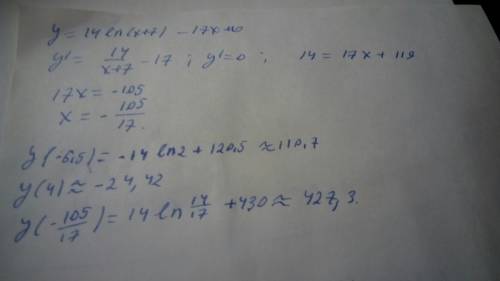 y = 14 ln(x+7) - 17x + 10
y' = 14/(x+7) - 17 ; y' = 0 ; 14 = 17x + 119
17x = -105
x = - 105/17.
y(-6,5) = -14 ln2 + 120,5 ≈ 110,7
y(4) ≈ -24,42
y(-105/17) = 14 ln 14/17 + 430 ≈ 427,3.